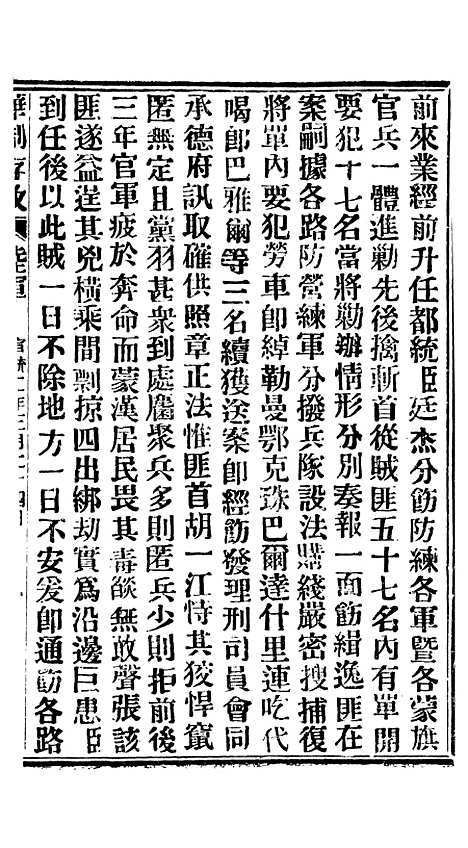 前來業經前升任都統臣廷杰分飭防練各軍暨各蒙旗
官兵一體進勦先後擒斬首從賊匪五十七名內有單開
要犯十七名當將勦辦情形分別奏報一面飭緝逸匪在
案嗣據各路防營練軍分撥兵隊設法購綫嚴密搜捕復
將單內要犯勞車卽綽勒曼鄂克珠巴爾達什里連吃代
喝卽巴雅爾等三名續獲送案卽經飭發理刑司員會同
承德府訊取確供照章正法惟匪首胡一江恃其狡悍竄
匿無定且黨羽甚衆到處屬聚兵多則匿兵少則拒前後
三年官軍疲於奔命而蒙漢居民畏其毒燄無敢聲張該
匪遂益逞其兇橫乘間剽掠四出綁劫實爲沿邊巨患臣
到任後以此賊一日不除地方一日不安爰卽通飭各路